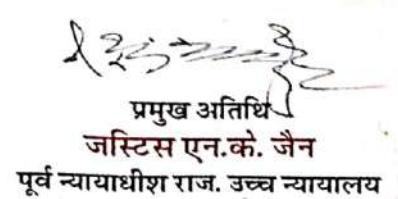 प्रमुख अतिथि
जस्टिस एन.के. जैन
पूर्व न्यायाधीश राज. उच्च न्यायालय